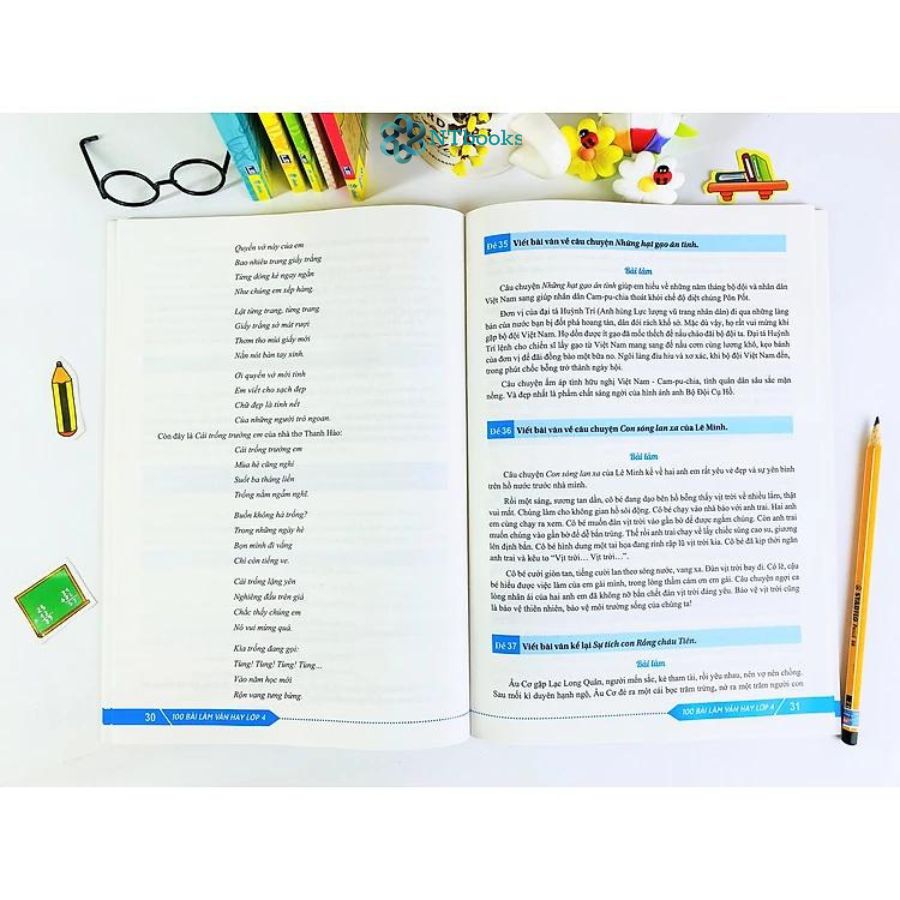 NTbooks
Quyển vở này của em
Bao nhiêu trang giấy trắng
Từng dòng kẻ ngay ngắn
Như chúng em xếp hàng.
Lật từng trang, từng trang
Giấy trắng sờ mát rượi
Thơm tho mùi giấy mới
Nắn nót bàn tay xinh.
Ơi quyển vở mới tinh
Em viết cho sạch đẹp
Chữ đẹp là tính nết
Của những người trò ngoan.
Còn đây là Cái trống trường em của nhà thơ Thanh Hào:
Cái trống trường em
Mùa hè cũng nghỉ
Suốt ba tháng liền
Trống nằm ngẫm nghĩ.
Buồn không hả trống?
Trong những ngày hè
Bọn mình đi vắng
Chỉ còn tiếng ve.
Cái trống lặng yên
Nghiêng đầu trên giá
Chắc thấy chúng em
Nó vui mừng quá.
Kìa trống đang gọi:
Tùng! Tùng! Tùng! Tùng...
Vào năm học mới
Rộn vang tưng bừng.
30 100 BÀI LÀM VĂN HAY LỚP 4
Đề 35 Viết bài văn về câu chuyện Những hạt gạo ân tình.
Bài làm
Câu chuyện Những hạt gạo ân tình giúp em hiểu về những năm tháng bộ đội và nhân dân
Việt Nam sang giúp nhân dân Cam-pu-chia thoát khỏi chế độ diệt chủng Pôn Pốt.
Đơn vị của đại tá Huỳnh Trí (Anh hùng Lực lượng vũ trang nhân dân) đi qua những làng
bản của nước bạn bị đốt phá hoang tàn, dân đói rách khổ sở. Mặc dù vậy, họ rất vui mừng khi
gặp bộ đội Việt Nam. Họ dồn được ít gạo đã mốc thếch để nấu cháo đãi bộ đội ta. Đại tá Huỳnh
Trí lệnh cho chiến sĩ lấy gạo từ Việt Nam mang sang để nấu cơm cùng lương khô, kẹo bánh
của đơn vị để đãi đồng bào một bữa no. Ngôi làng đìu hiu và xơ xác, khi bộ đội Việt Nam đến,
trong phút chốc bỗng trở thành ngày hội.
Câu chuyện ấm áp tình hữu nghị Việt Nam - Cam-pu-chia, tình quân dân sâu sắc mặn
nồng. Và đẹp nhất là phẩm chất sáng ngời của hình ảnh anh Bộ Đội Cụ Hồ.
Đề 36 Viết bài văn về câu chuyện Con sóng lan xa của Lê Minh.
Bài làm
Câu chuyện Con sóng lan xa của Lê Minh kể về hai anh em rất yêu vẻ đẹp và sự yên bình
trên hồ nước trước nhà mình.
Rồi một sáng, sương tan dần, cô bé đang dạo bên hồ bỗng thấy vịt trời về nhiều lắm, thật
vui mắt. Chúng làm cho không gian hồ sôi động. Cô bé chạy vào nhà báo với anh trai. Hai anh
em cùng chạy ra xem. Cô bé muốn đàn vịt trời vào gần bờ để được ngắm chúng. Còn anh trai
muốn chúng vào gần bờ để dễ bắn trúng. Thế rồi anh trai chạy về lấy chiếc súng cao su, giương
lên định bắn. Cô bé hình dung một tai họa đang rình rập lũ vịt trời kia. Cô bé đã kịp thời ngăn
anh trai và kêu to “Vịt trời... Vịt trời...”.
Cô bé cười giòn tan, tiếng cười lan theo sóng nước, vang xa. Đàn vịt trời bay đi. Có lẽ, cậu
bé hiểu được việc làm của em gái mình, trong lòng thầm cảm ơn em gái. Câu chuyện ngợi ca
lòng nhân ái của hai anh em đã không nỡ bắn chết đàn vịt trời đáng yêu. Bảo vệ vịt trời cũng
là bảo vệ thiên nhiên, bảo vệ môi trường sống của chúng ta!
Đề 37 Viết bài văn kể lại Sự tích con Rồng cháu Tiên.
Bài làm
Âu Cơ gặp Lạc Long Quân, người mến sắc, kẻ tham tài, rồi yêu nhau, nên vợ nên chồng.
Sau mối kì duyên hạnh ngộ, Âu Cơ đẻ ra một cái bọc trăm trứng, nở ra một trăm người con
100 BÀI LÀM VĂN HAY LỚP 4 31
STABILO